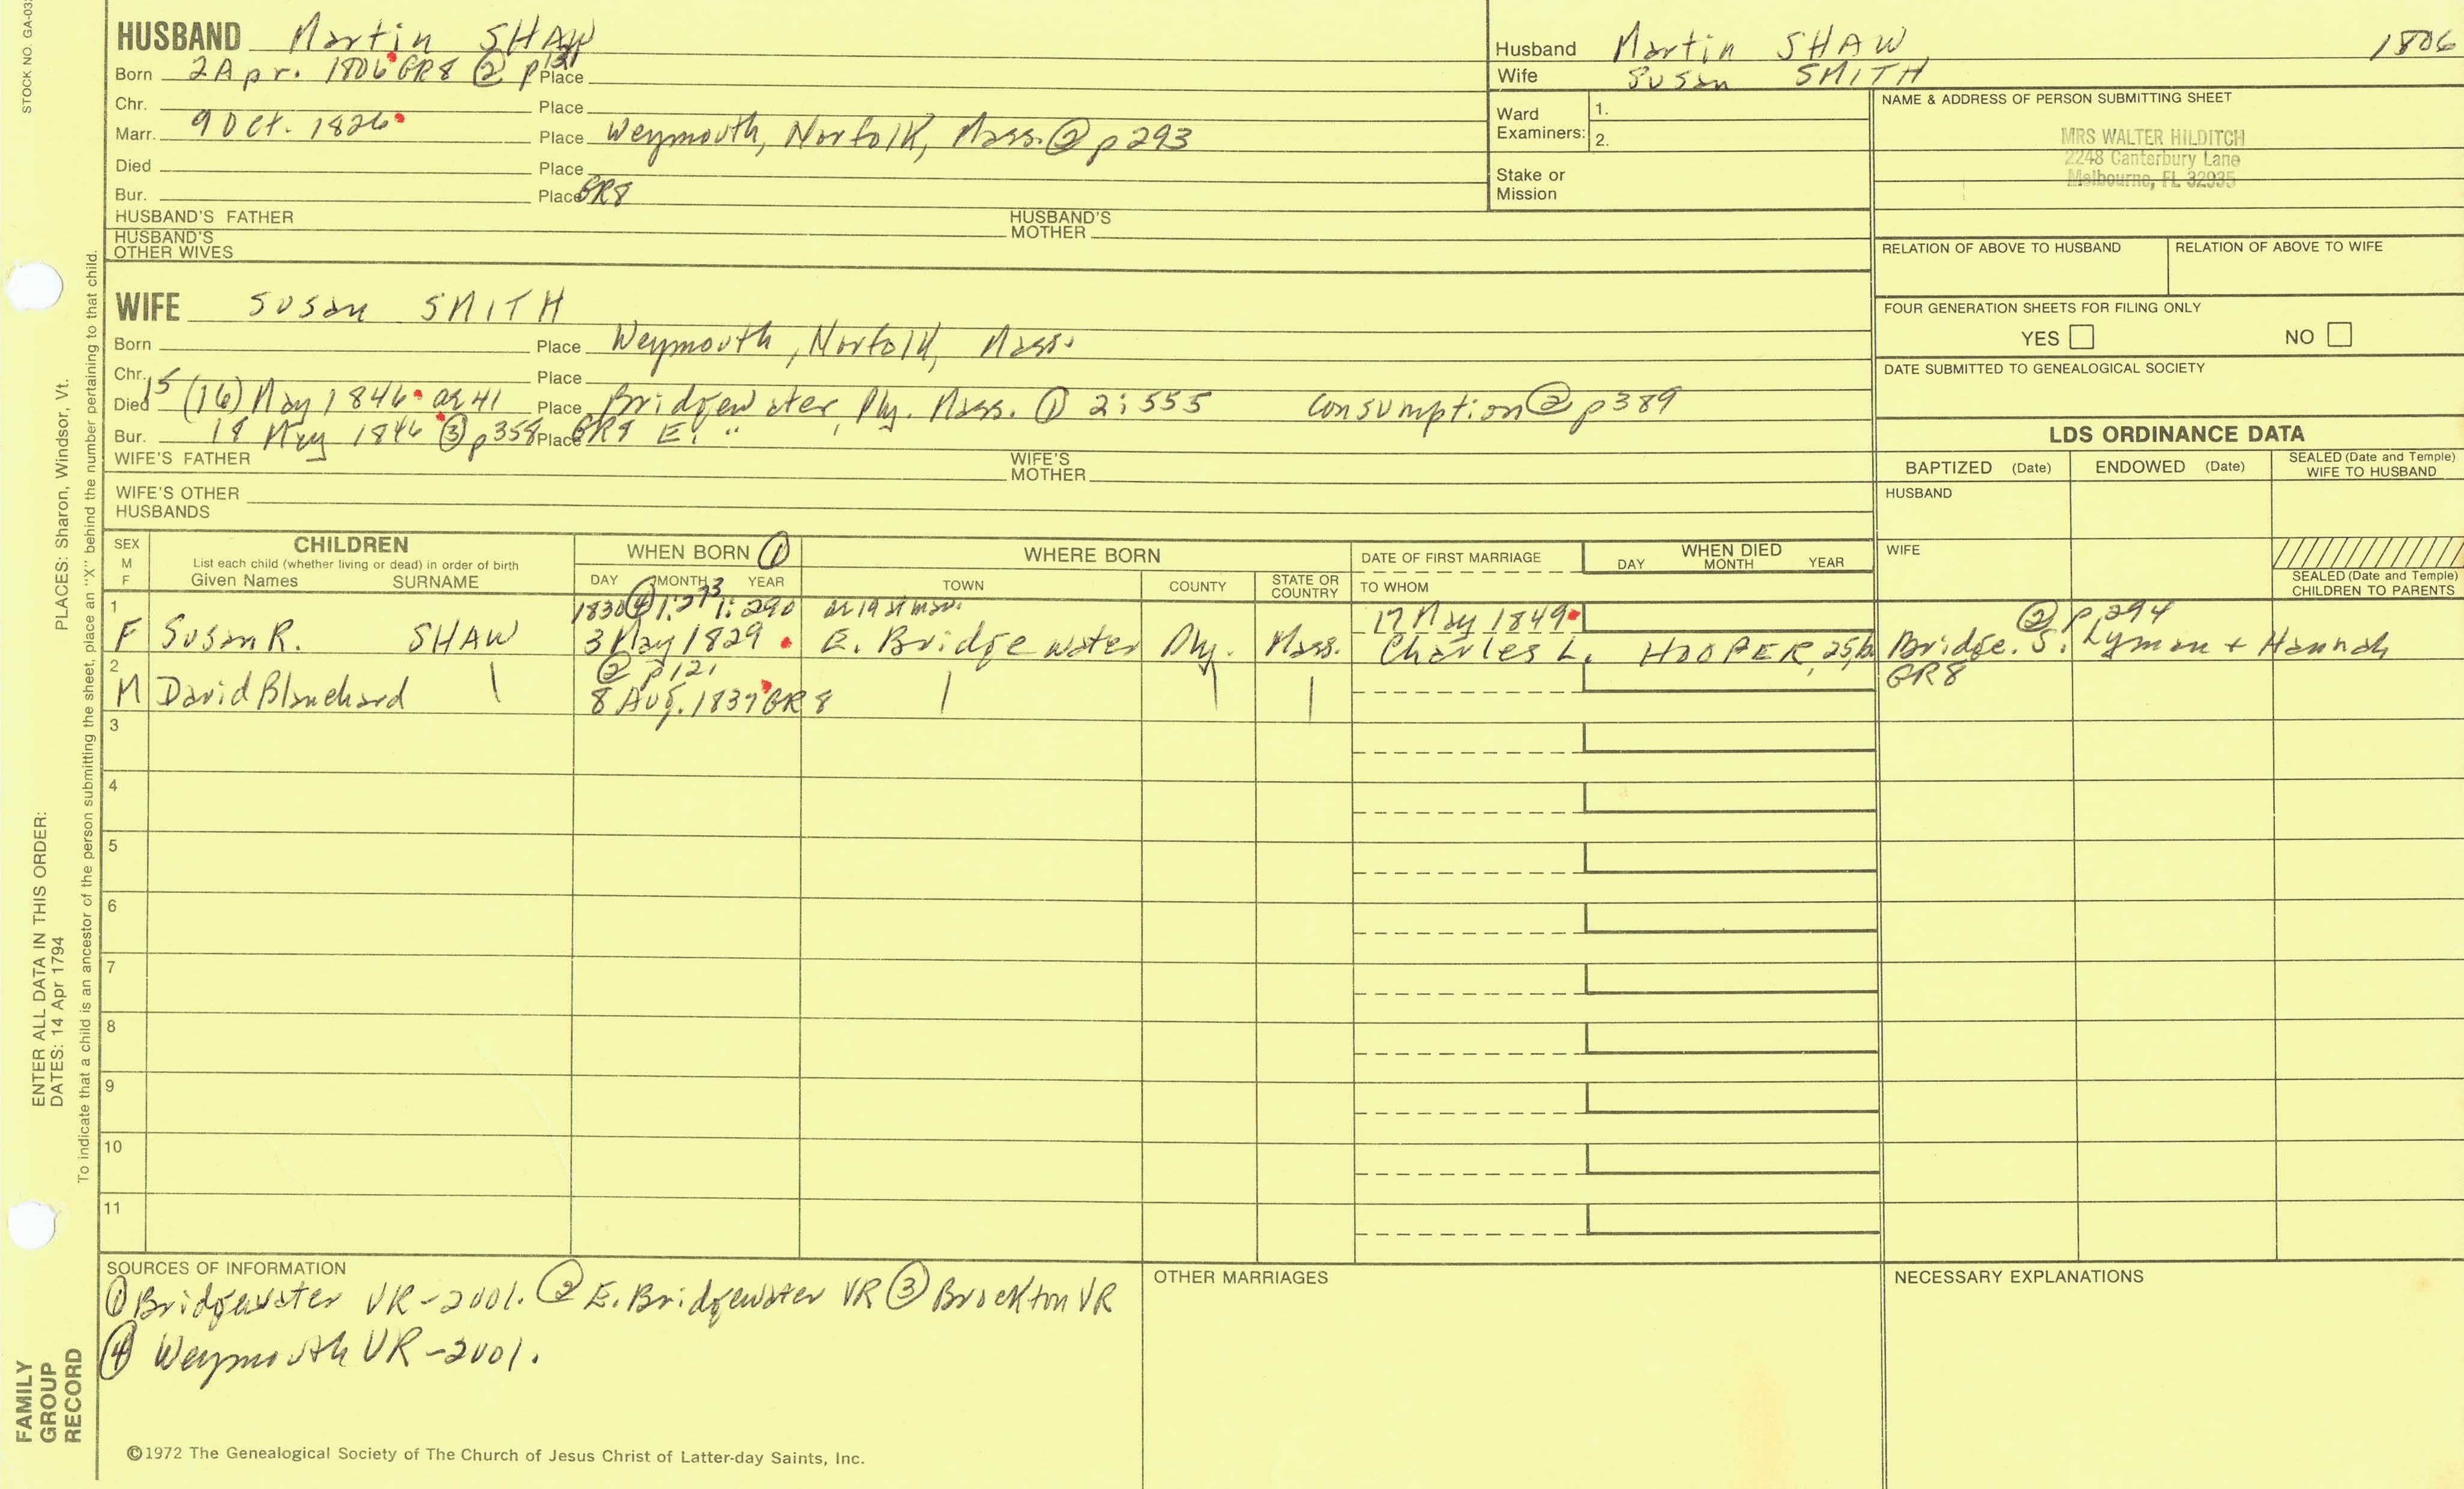 STOCK NO. GA-03
HUSBAND Martin SHAW
Born 2 Apr. 1806 GR8 ② p121 Place
Chr. Place
Marr. 9 Oct. 1826 Place Weymouth, Norfolk, Mass. ② p293
Died Place
Bur. Place GR8
HUSBAND'S FATHER HUSBAND'S MOTHER
HUSBAND'S OTHER WIVES
WIFE Susan SMITH
Born Place Weymouth, Norfolk, Mass.
Chr. Place
Died 15 (16) May 1846 ae 41 Place Bridgewater, Ply. Mass. ① 2:555 Consumption ② p389
Bur. 18 May 1846 ③ p358 Place GR8 E. " ,
WIFE'S FATHER WIFE'S MOTHER
WIFE'S OTHER HUSBANDS
Husband Martin SHAW 1806
Wife Susan SMITH
Ward Examiners: 1.
2.
Stake or Mission
NAME & ADDRESS OF PERSON SUBMITTING SHEET
MRS WALTER HILDITCH
2248 Canterbury Lane
Melbourne, FL 32935
RELATION OF ABOVE TO HUSBAND RELATION OF ABOVE TO WIFE
FOUR GENERATION SHEETS FOR FILING ONLY
YES NO
DATE SUBMITTED TO GENEALOGICAL SOCIETY
LDS ORDINANCE DATA
BAPTIZED (Date) ENDOWED (Date) SEALED (Date and Temple) WIFE TO HUSBAND
HUSBAND
WIFE
SEALED (Date and Temple) CHILDREN TO PARENTS
SEX M F
CHILDREN
List each child (whether living or dead) in order of birth
Given Names SURNAME
WHEN BORN ①
DAY MONTH YEAR
WHERE BORN
TOWN COUNTY STATE OR COUNTRY
DATE OF FIRST MARRIAGE
TO WHOM
WHEN DIED
DAY MONTH YEAR
1 1830 ④ 1:273 1:290 ae 19 st mar. 17 May 1849 ② p294
F Susan R. SHAW 3 May 1829 E. Bridgewater Ply. Mass. Charles L. HOOPER, 25, b Bridge. S. Lyman + Hannah
2 ② p121 GR8
M David Blanchard | 8 Aug. 1837 GR8 | | |
3
4
5
6
7
8
9
10
11
SOURCES OF INFORMATION
① Bridgewater VR-2001. ② E. Bridgewater VR ③ Brockton VR
④ Weymouth VR-2001.
OTHER MARRIAGES
NECESSARY EXPLANATIONS
©1972 The Genealogical Society of The Church of Jesus Christ of Latter-day Saints, Inc.
FAMILY GROUP RECORD
ENTER ALL DATA IN THIS ORDER:
DATES: 14 Apr 1794
PLACES: Sharon, Windsor, Vt.
To indicate that a child is an ancestor of the person submitting the sheet, place an "X" behind the number pertaining to that child.